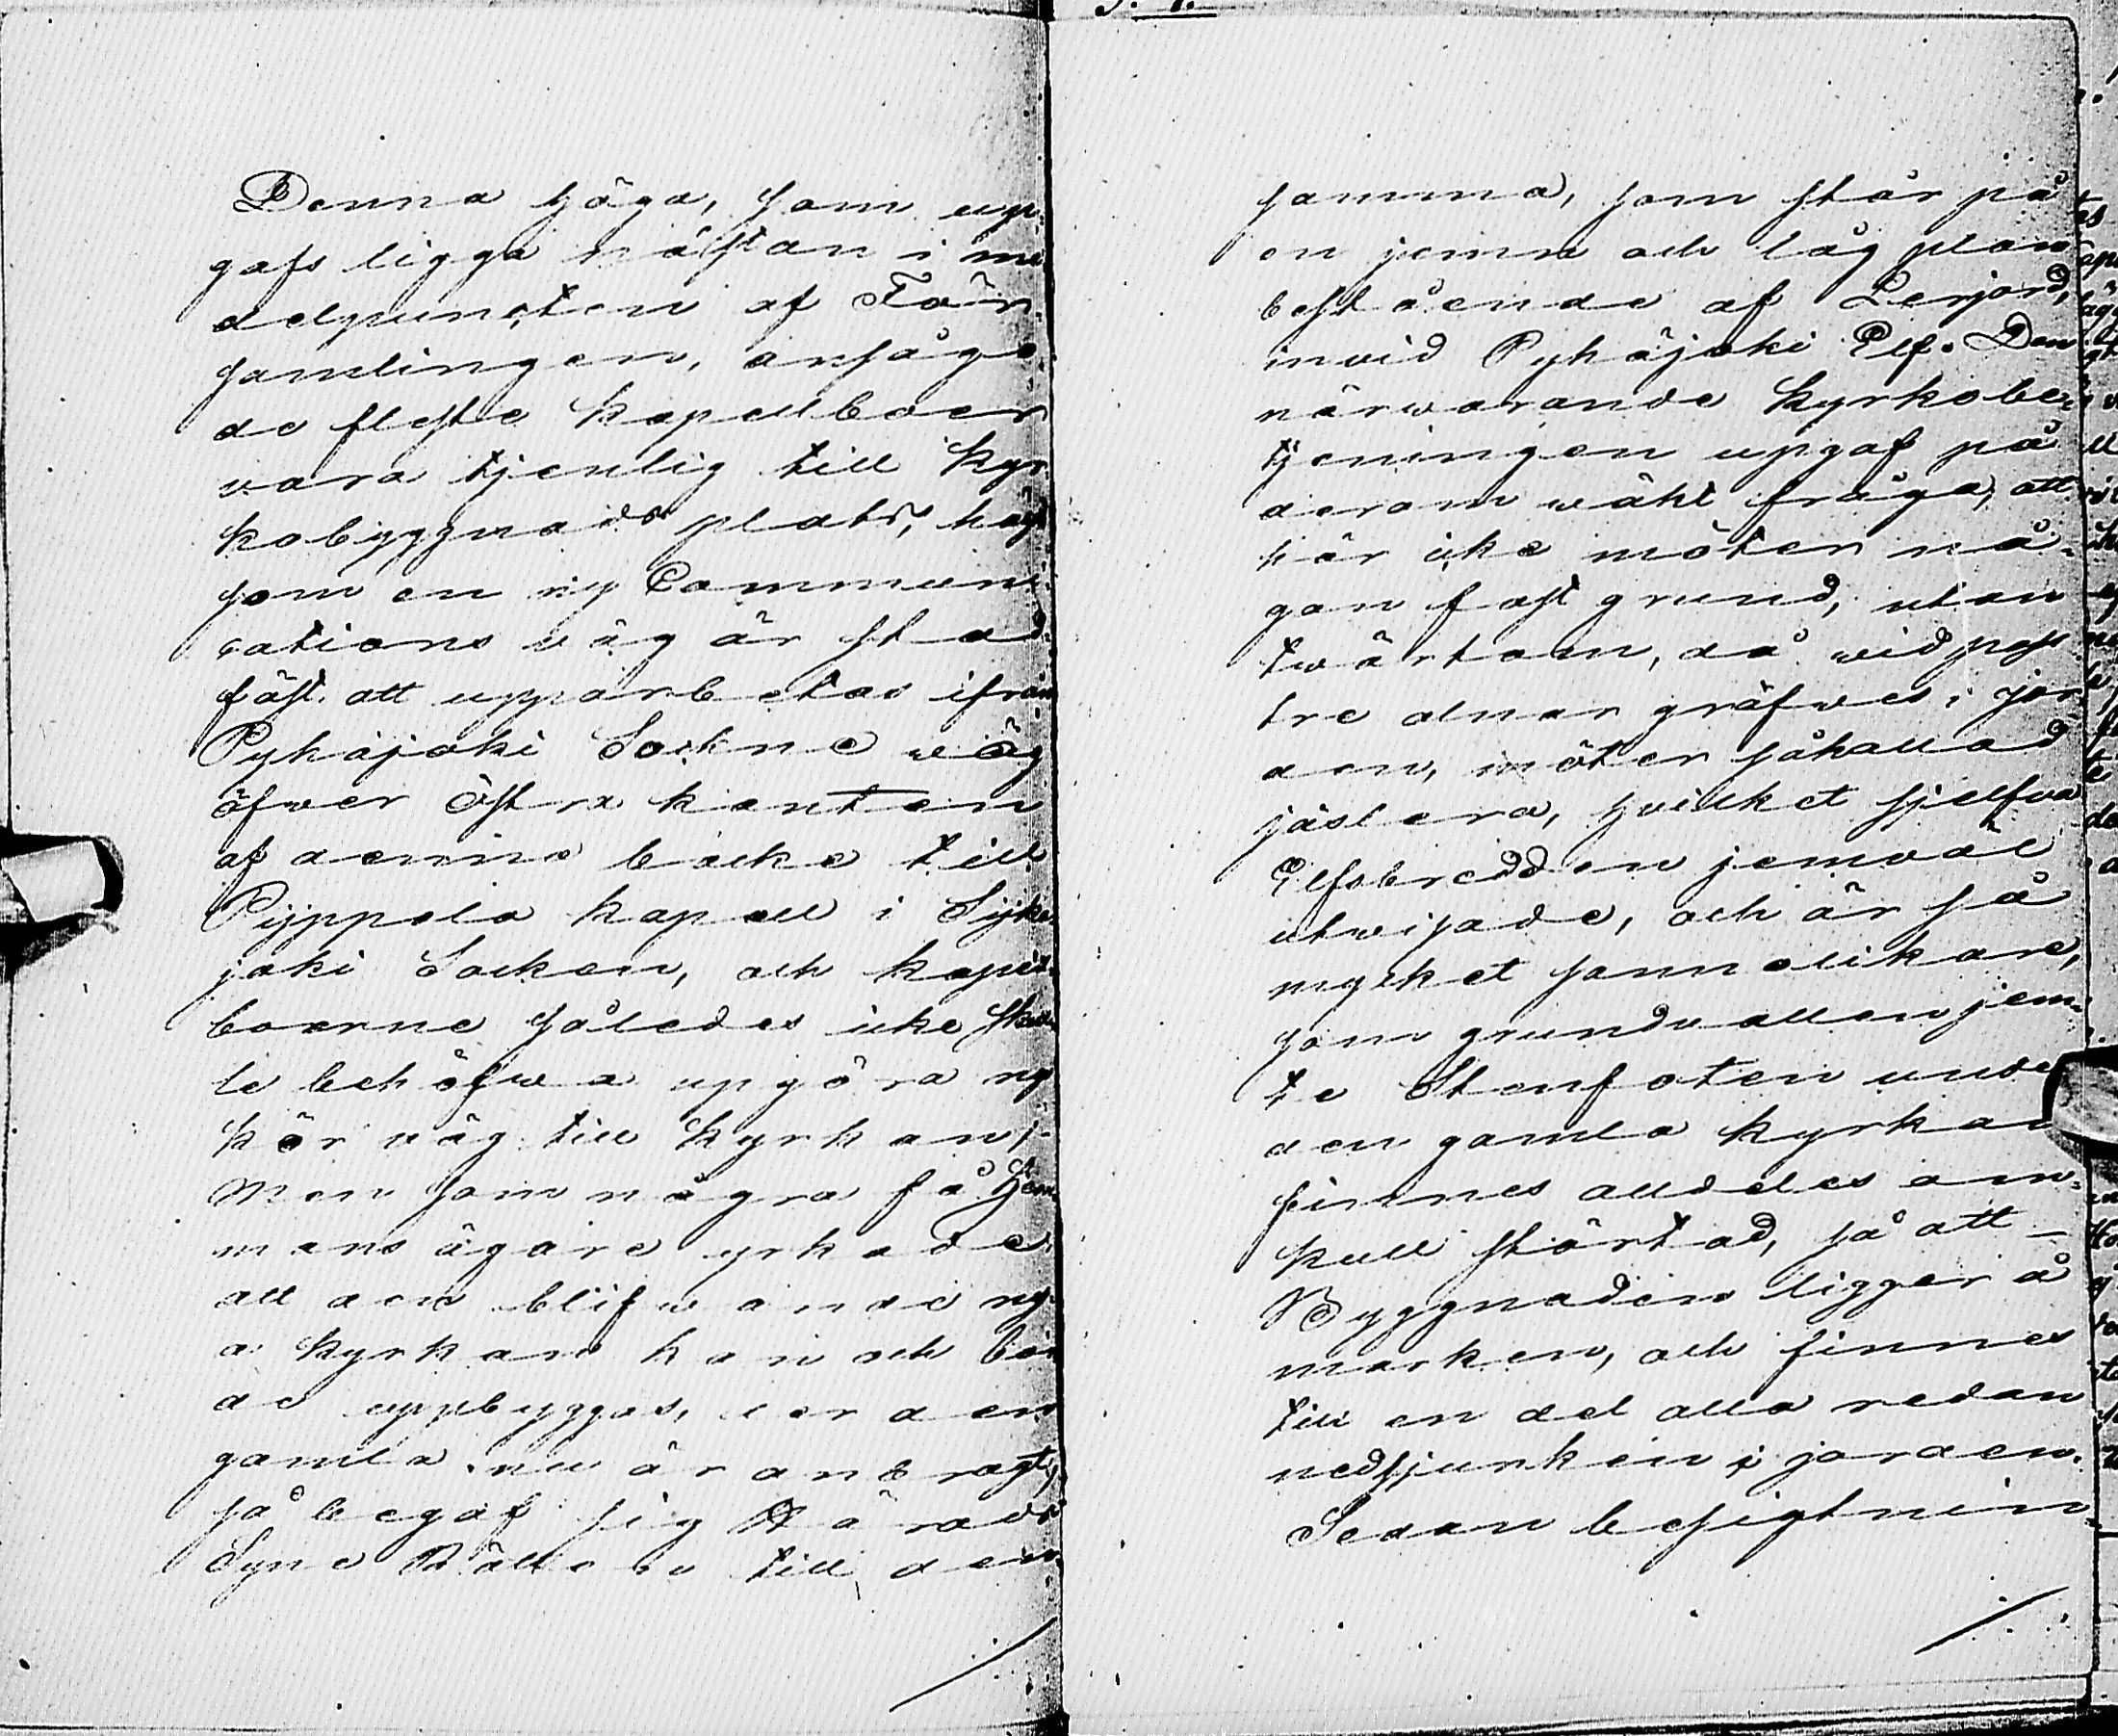 Denna höga, som up-
gafs ligga nästan i me
delpuncten af För-
samlingen, ansågo
de fleste kapellboer
vara tjenlig till kyr
kobyggnads plats, häst
som en ny Communi-
cations väg är stad-
fäst att upparbetas ifrån
Pyhäjoki Sockne wäg
öfwer östra kanten
af denna backe till
Pyppola kapell i Sijka
joki Socken, och kapell-
boerne således icke skul-
le behöfwa upgöra ny
kör väg till kyrkan,
Men som några få Hem
mans ägare yrkade
att den blifwande ny-
a kyrkan kan och bör
de uppbyggas, der den
gamla nu är anbragt,
så begaf sig Härads
Syne Rätten till den
samma, som står på
en jemn och låg plan
bestående af Lerjord,
invid Pyhäjoki Elf. Den
närwarande kyrkobe-
tjeningen upgaf på
derom wäkt fråga, att
här icke möter nå-
gon fast grund, utan
twärtom, då wid pass
tre alnar gräfwes i jor
den, möter såkallad
jäslera, hvilket sjelfwa
Elfsbrädden jemwäl
utwisade, och är så
mycket sannolikare,
som grundvallen jem-
te Stenfoten unde
den gamla kyrkan
finnes alldeles om-
kull störtad, så att
Byggnaden ligger å
marken, och finnes
till en del alla redan
nedsjunken i jorden.
Sedan besigtnin-